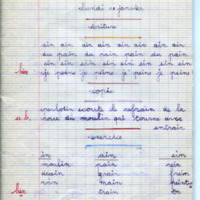 Lundi 10 janvier
écriture
ain ain ain ain ain ain ain
du pain du pain du pain du
ein ein ein ein ein ein ein ein
je peins je peins je peins je peins
copie
a.b. écoute le refrain de la
roue du moulin qui tourne avec
entrain
exercice
in ain ein
moulin pain rein
dessin grain frein
main
train